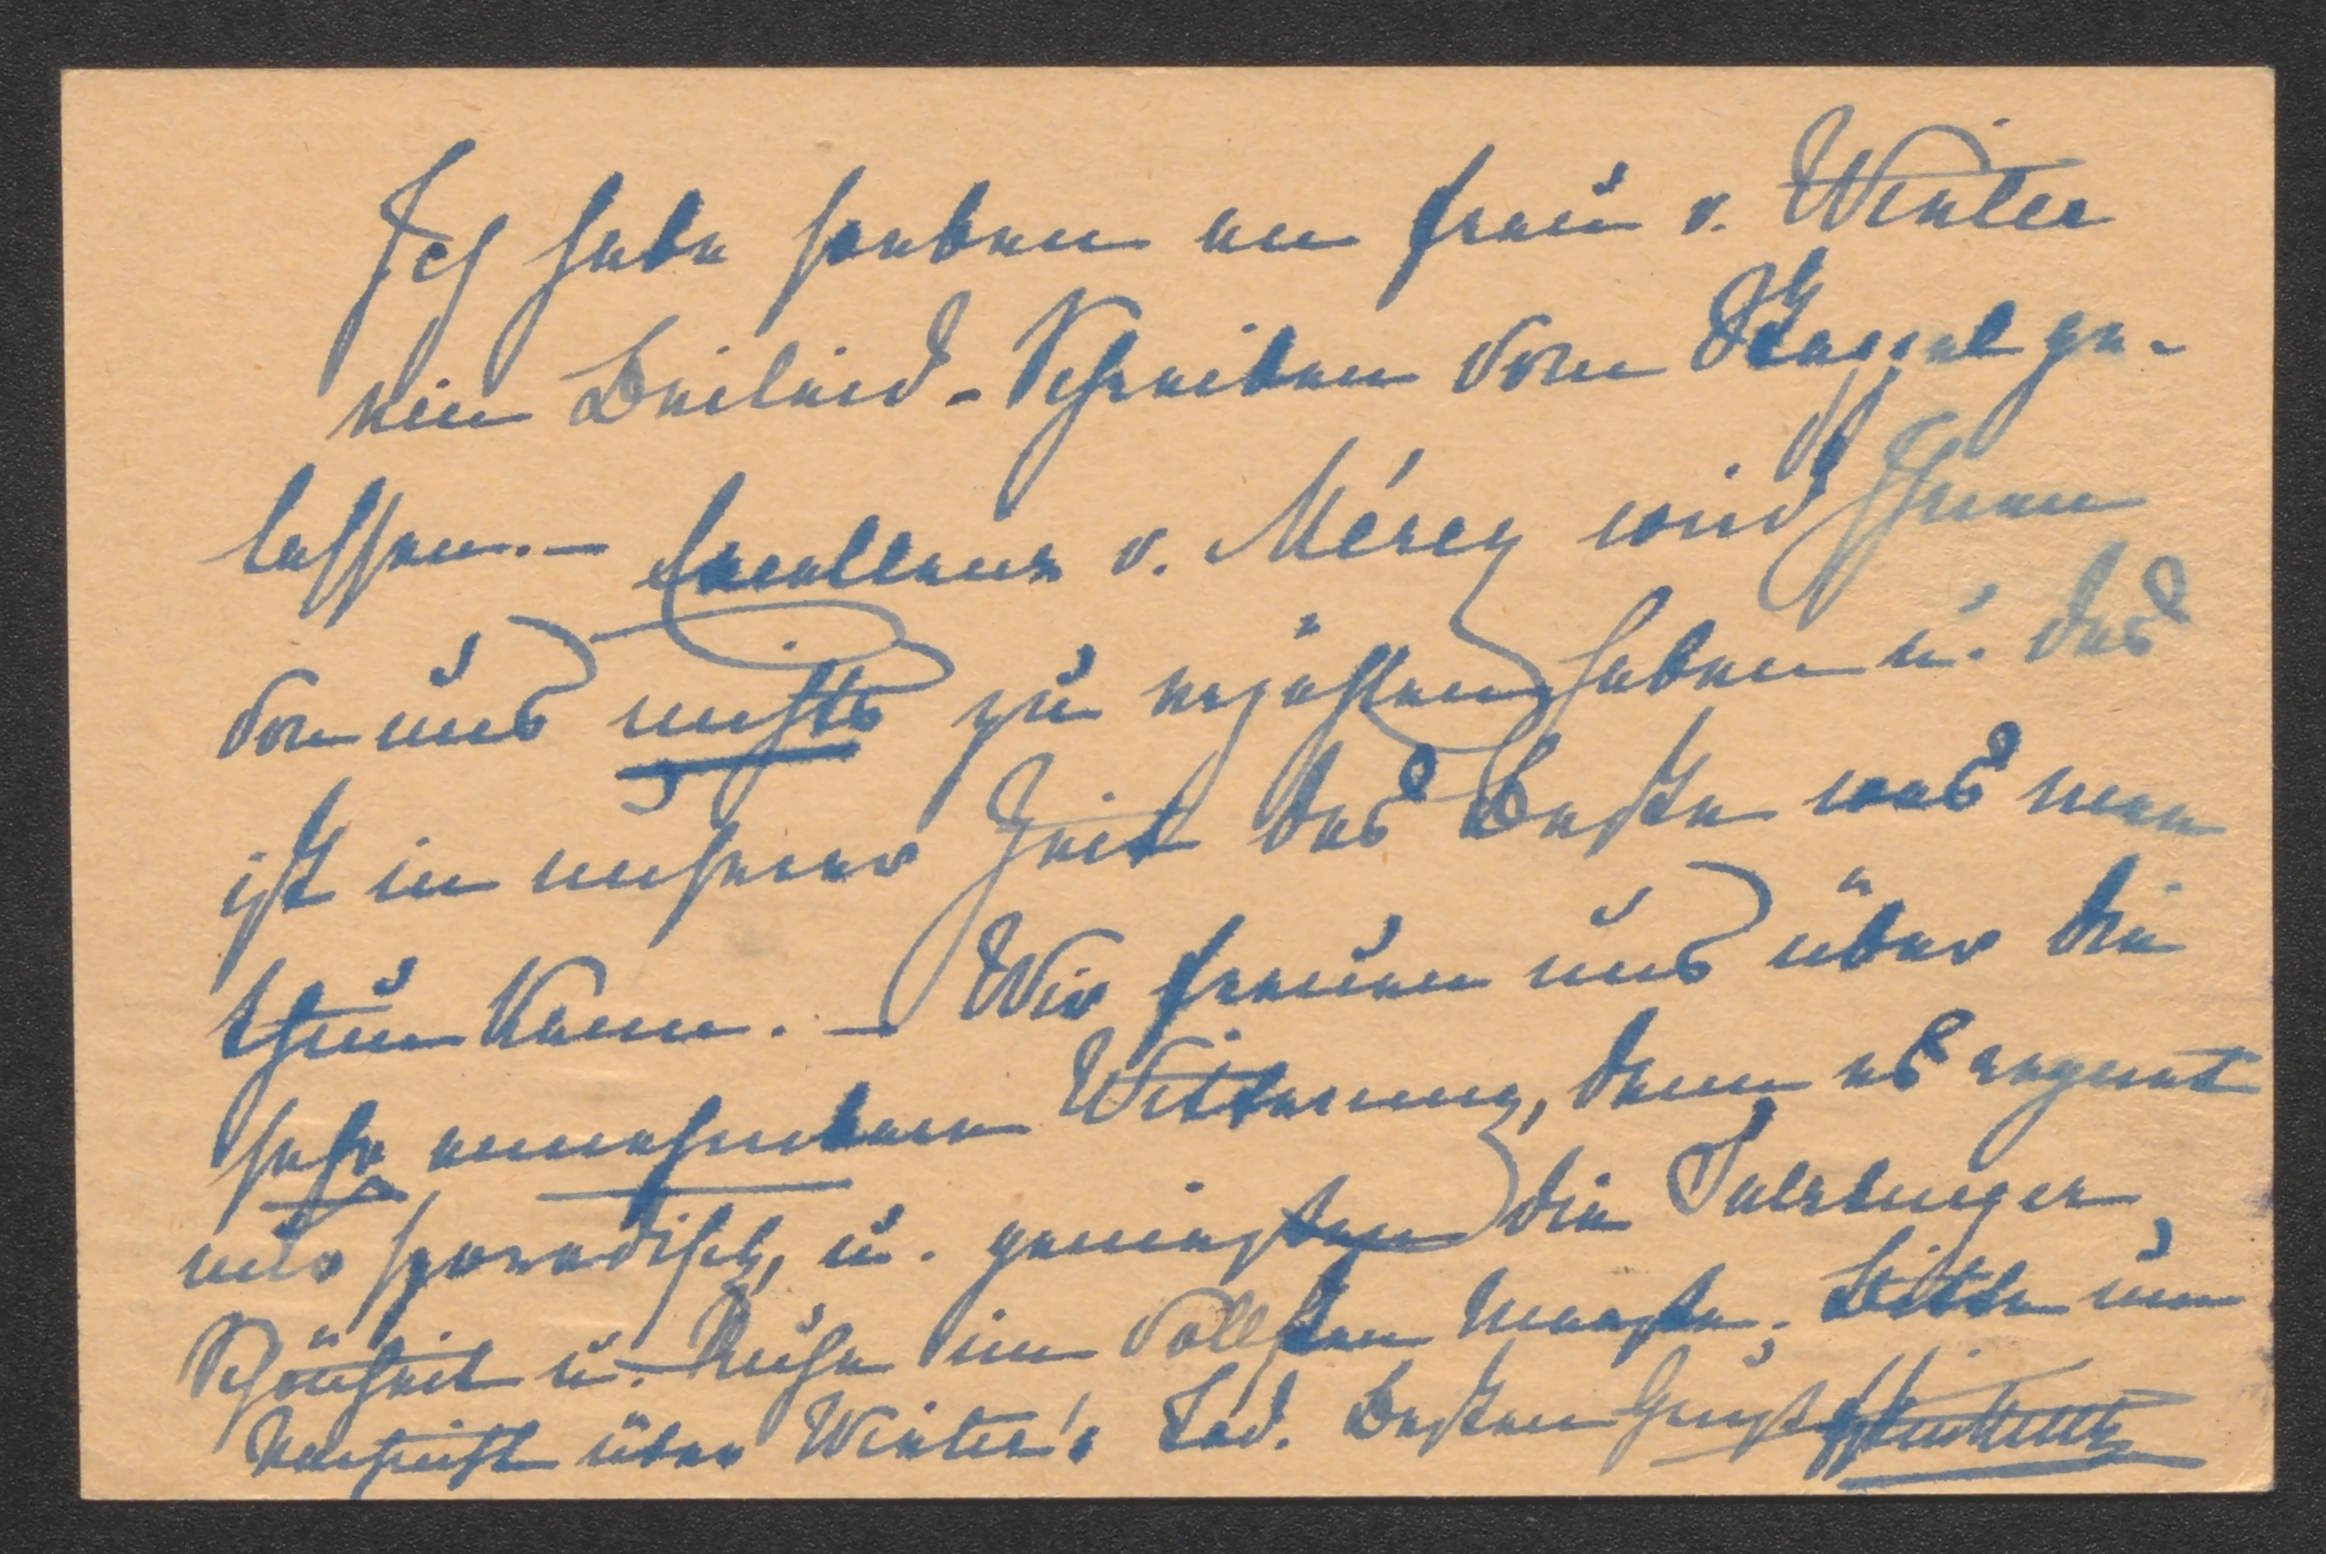 Ich habe soeben an Frau v. Winter
ein Beileid-Schreiben vom Stapel ge-
lassen. – Excellenz v. Mérey wird Ihnen
von uns nichts zu erzählen haben u. das
ist in unserer Zeit das Beste was man
thun kann. – Wir freuen uns über die
sehr annehmbare Witterung, denn es regnet
nur sporadisch, u. geniessen die Salzburger
Schönheit u. Ruhe im vollsten Maaße. Bitte um
Nachricht über Winter's Tod. Besten Gruß